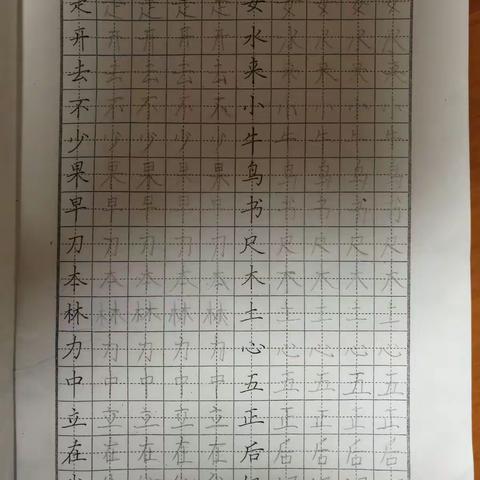 走 走 走 走 走
开 开 开 开 开 水 水 水 水 水
去 去 去 去 去 来 来 来 来 来
不 不 不 不 不 小 小 小 小 小
少 少 少 少 少 牛 牛 牛 牛 牛
果 果 果 果 果 鸟 鸟 鸟 鸟 鸟
早 早 早 早 早 书 书 书 书 书
刀 刀 刀 刀 刀 尺 尺 尺 尺 尺
本 本 本 本 本 木 木 木 木 木
林 林 林 林 林 土 土 土 土 土
力 力 力 力 力 心 心 心 心 心
中 中 中 中 中 五 五 五 五 五
立 立 立 立 立 正 正 正 正 正
在 在 在 在 在 后 后 后 后 后